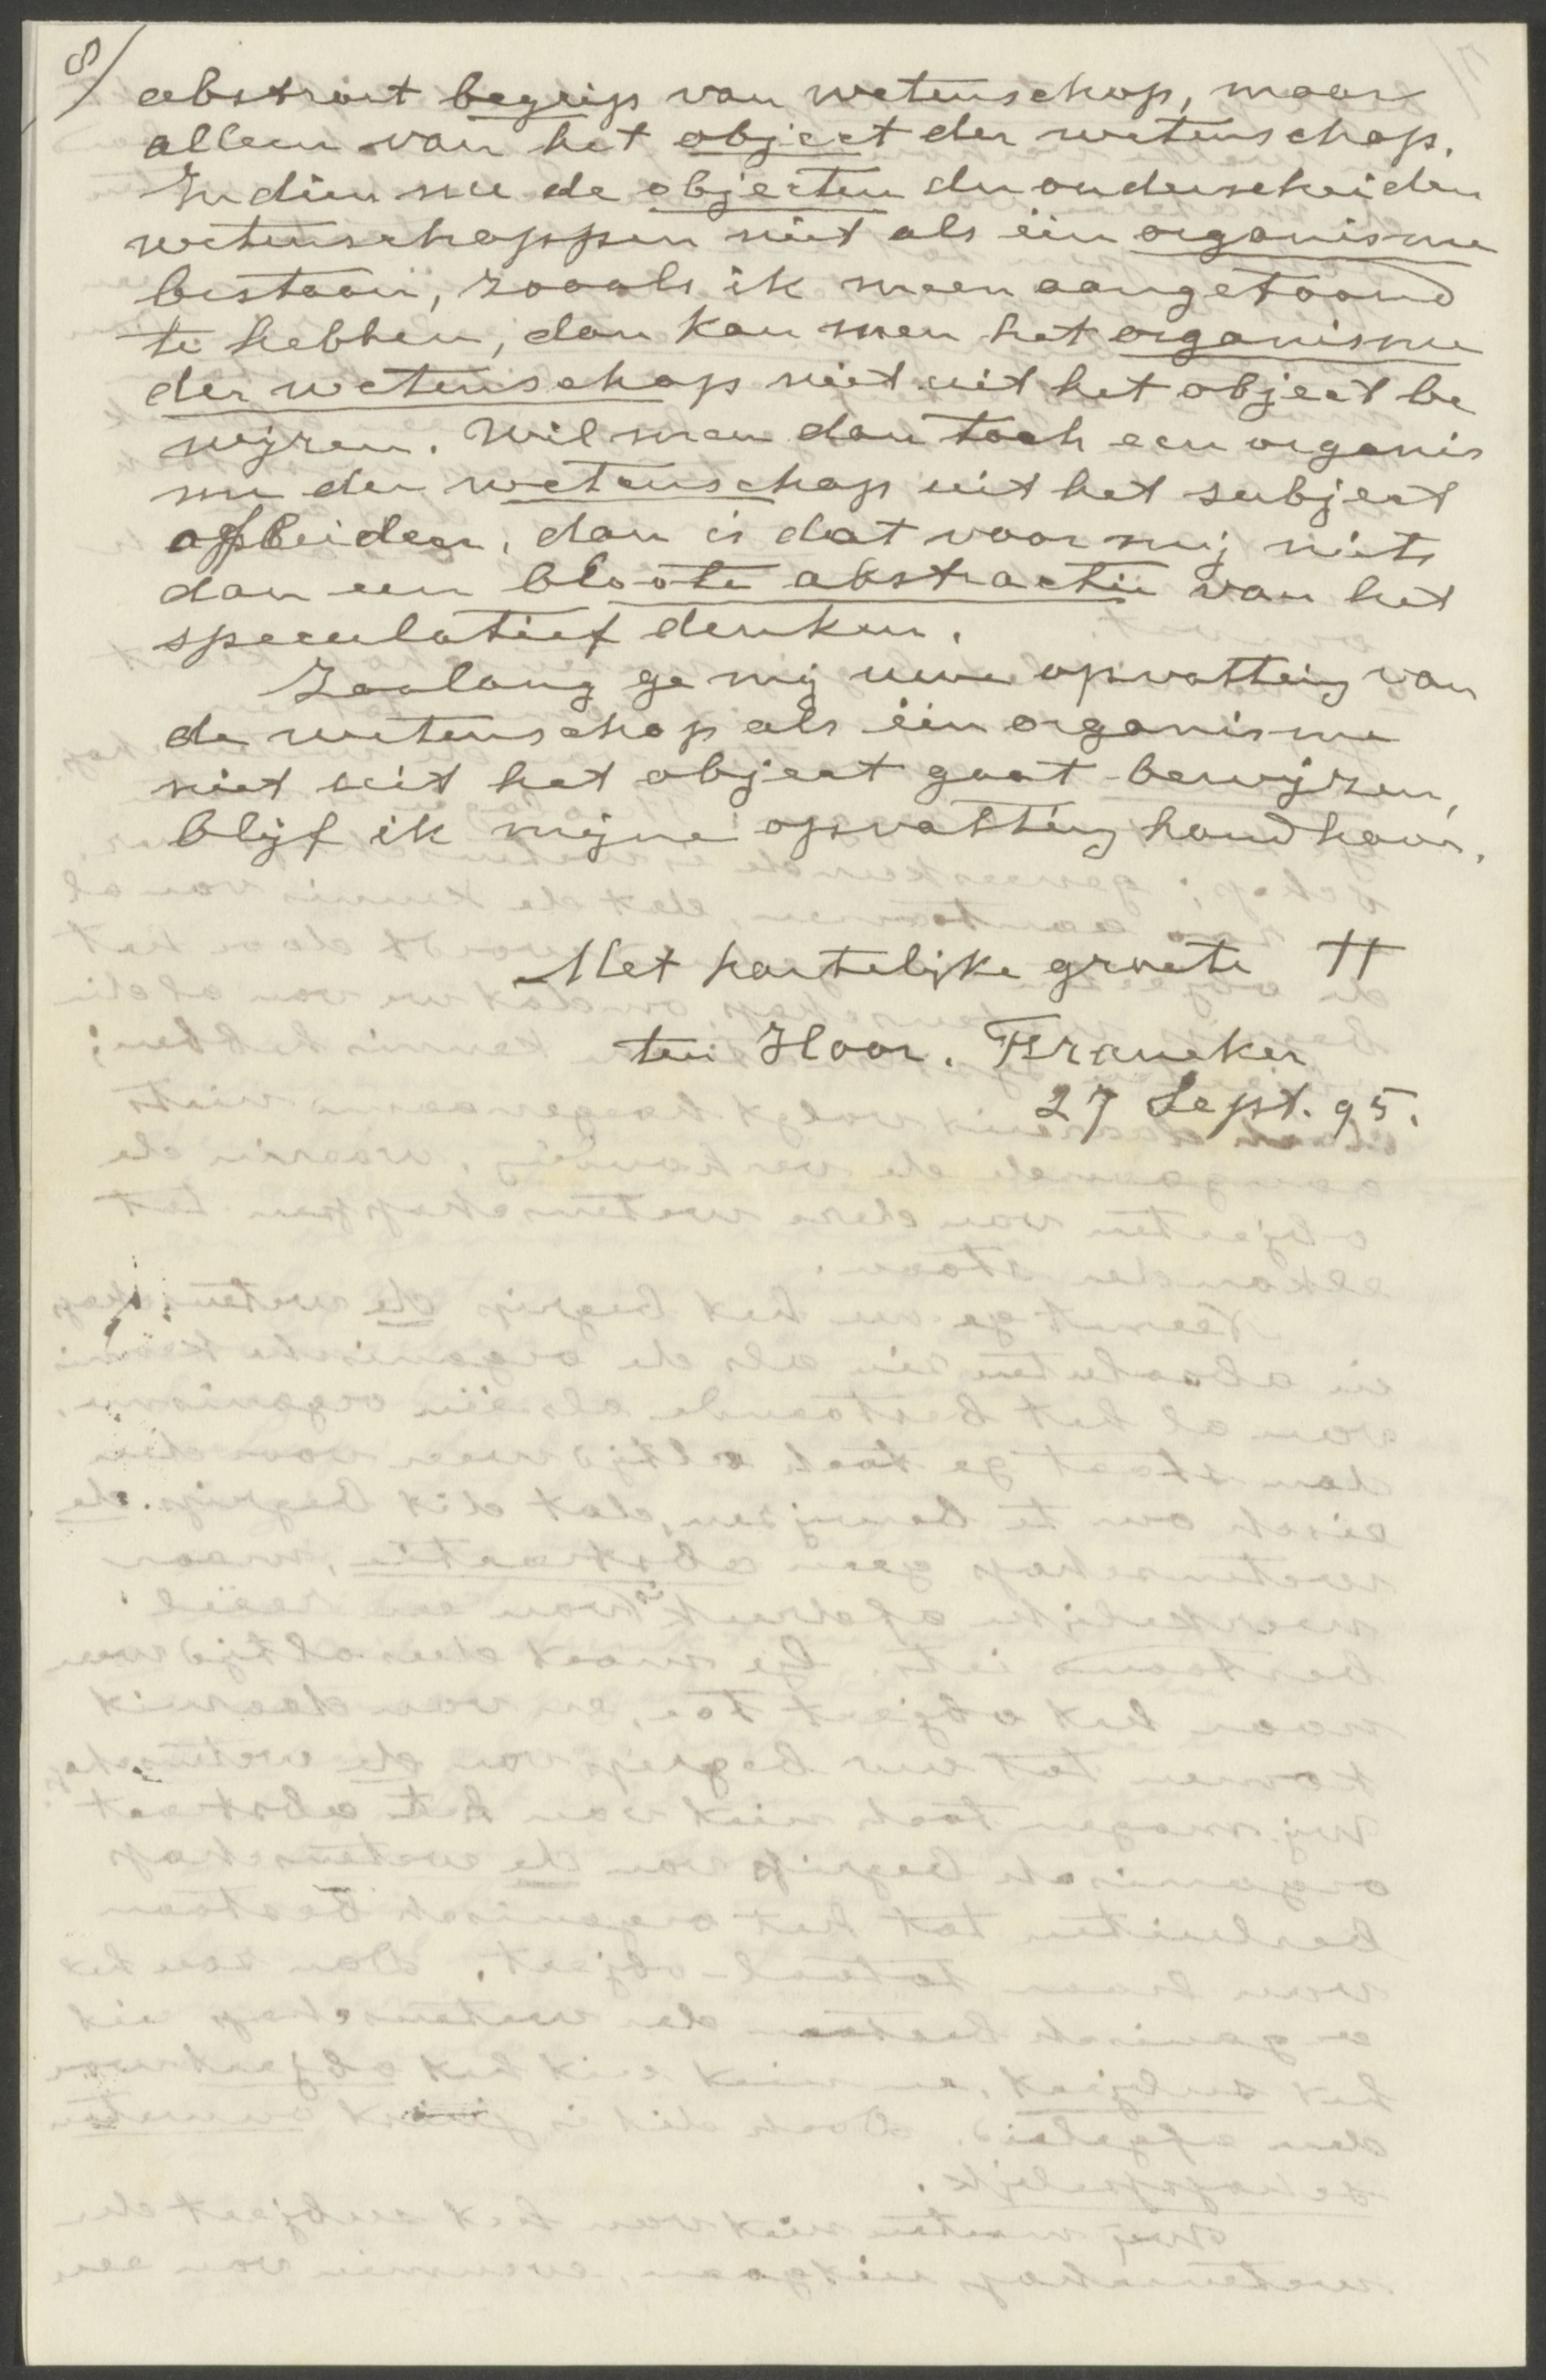 8/
abstract begrip van wetenschap, maar
alleen van het object der wetenschap.
Indien nu de objecten der onderscheiden
wetenschappen niet als één organisme
bestaan, zooals ik meen aangetoond
te hebben, dan kan men het organisme
der wetenschap niet uit het object be
wijzen. Wil men dan toch een organis
me der wetenschap uit het subject
afleiden, dan is dat voor mij niets
dan een bloote abstractie van het
speculatief denken.
Zoolang ge mij uwe opvatting van
de wetenschap als één organisme
niet uit het object gaat bewijzen,
blijf ik mijne opvatting handhav'n.
Met hartelijke groete tt
ten Hoor. Franeker
27 Sept. 95.